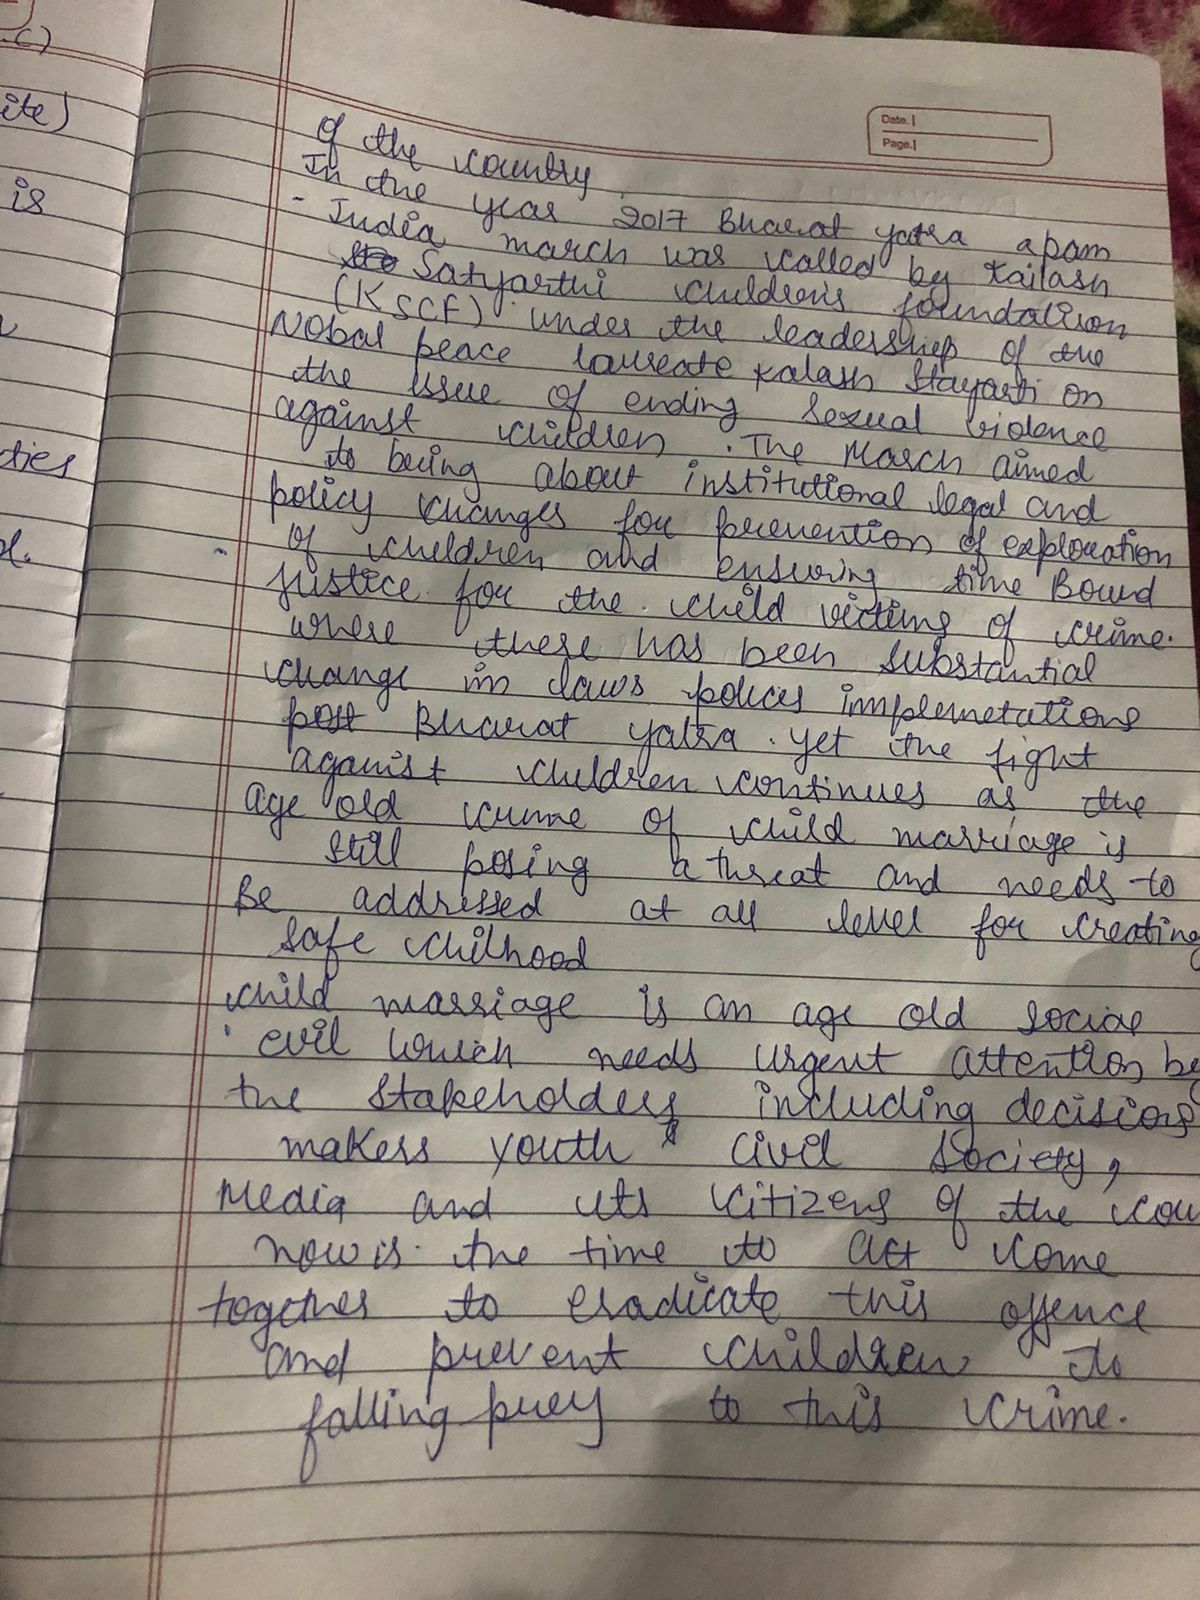 c)
ite)
is
ties
d.
Date.
Page.
of the country
In the year 2017 Bharat yatra a pam
- India march was called by Kailash
Satyarthi children's foundation
(KSCF) under the leadership of the
Nobal peace laureate Kalash Stayarti on
the issue of ending sexual violence
against children. The March aimed
to being about institutional legal and
policy changes for prevention of exploration
of children and ensuring time Bound
Justice for the child victims of crime.
where there has been substantial
change in laws polices implemetations
post Bharat yatra. yet the fight
against children continues as the
age old crime of child marriage is
still posing a threat and needs to
Be addressed at all level for creating
safe chilhood
child marriage is an age old social
evil which needs urgent attention by
the stakeholders including decisions
makers youth & civil society,
Media and its citizens of the cou
now is the time to act come
together to eradicate this offence
and prevent children to
falling prey to this crime.